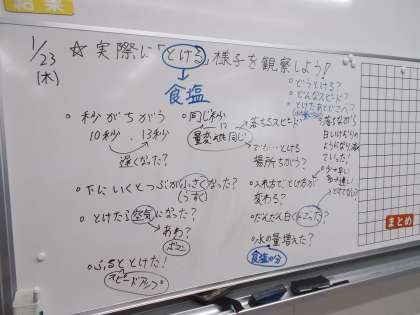 結果
1/23
(木)
☆実際に「とける」様子を観察しよう!!
食塩
・どうとける?
・どんなスピード?
・とけたあとどこへ?
・秒がちがう
10秒、13秒
遅くなった?
・同じ秒
量変えても同じ
落ちるスピード
でも…とける
場所ちがう?
・落ちながら
白いけむりの
ようになり
ていった!
・下にいくとつぶが小さくなった?
(うすく)
・入れ方でとけ方が
変わる?
・とけたら空気になった?
あわ?
・だんだん白くにごった?
・水の量増えた?
食塩の分
・ふちっととけた!
スピードアップ
まとめ